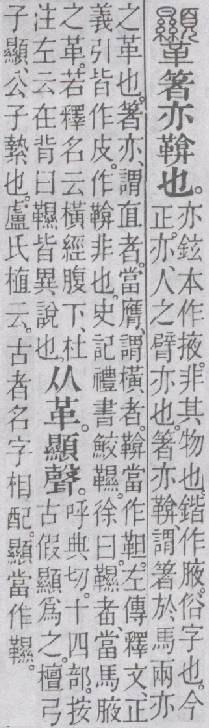 韅箸亦鞥也。
亦鉉本作掖。非其物也。鍇作腋。俗字也。今
正。亦、人之臂亦也。箸亦鞥、謂箸於馬兩亦
之革也。箸亦、謂直者。當膺、謂橫者。鞥當作靼。左傳釋文、正
義引皆作皮。作鞥非也。史記禮書鮫韅。徐曰。韅者、當馬腋
之革。若釋名云橫經腹下、杜
注左云在背曰韅皆異說也
从革。顯聲。
呼典切。十四部。按
古假顯爲之。檀弓
子顯、公子縶也。盧氏植云。古者名字相配。顯當作韅。